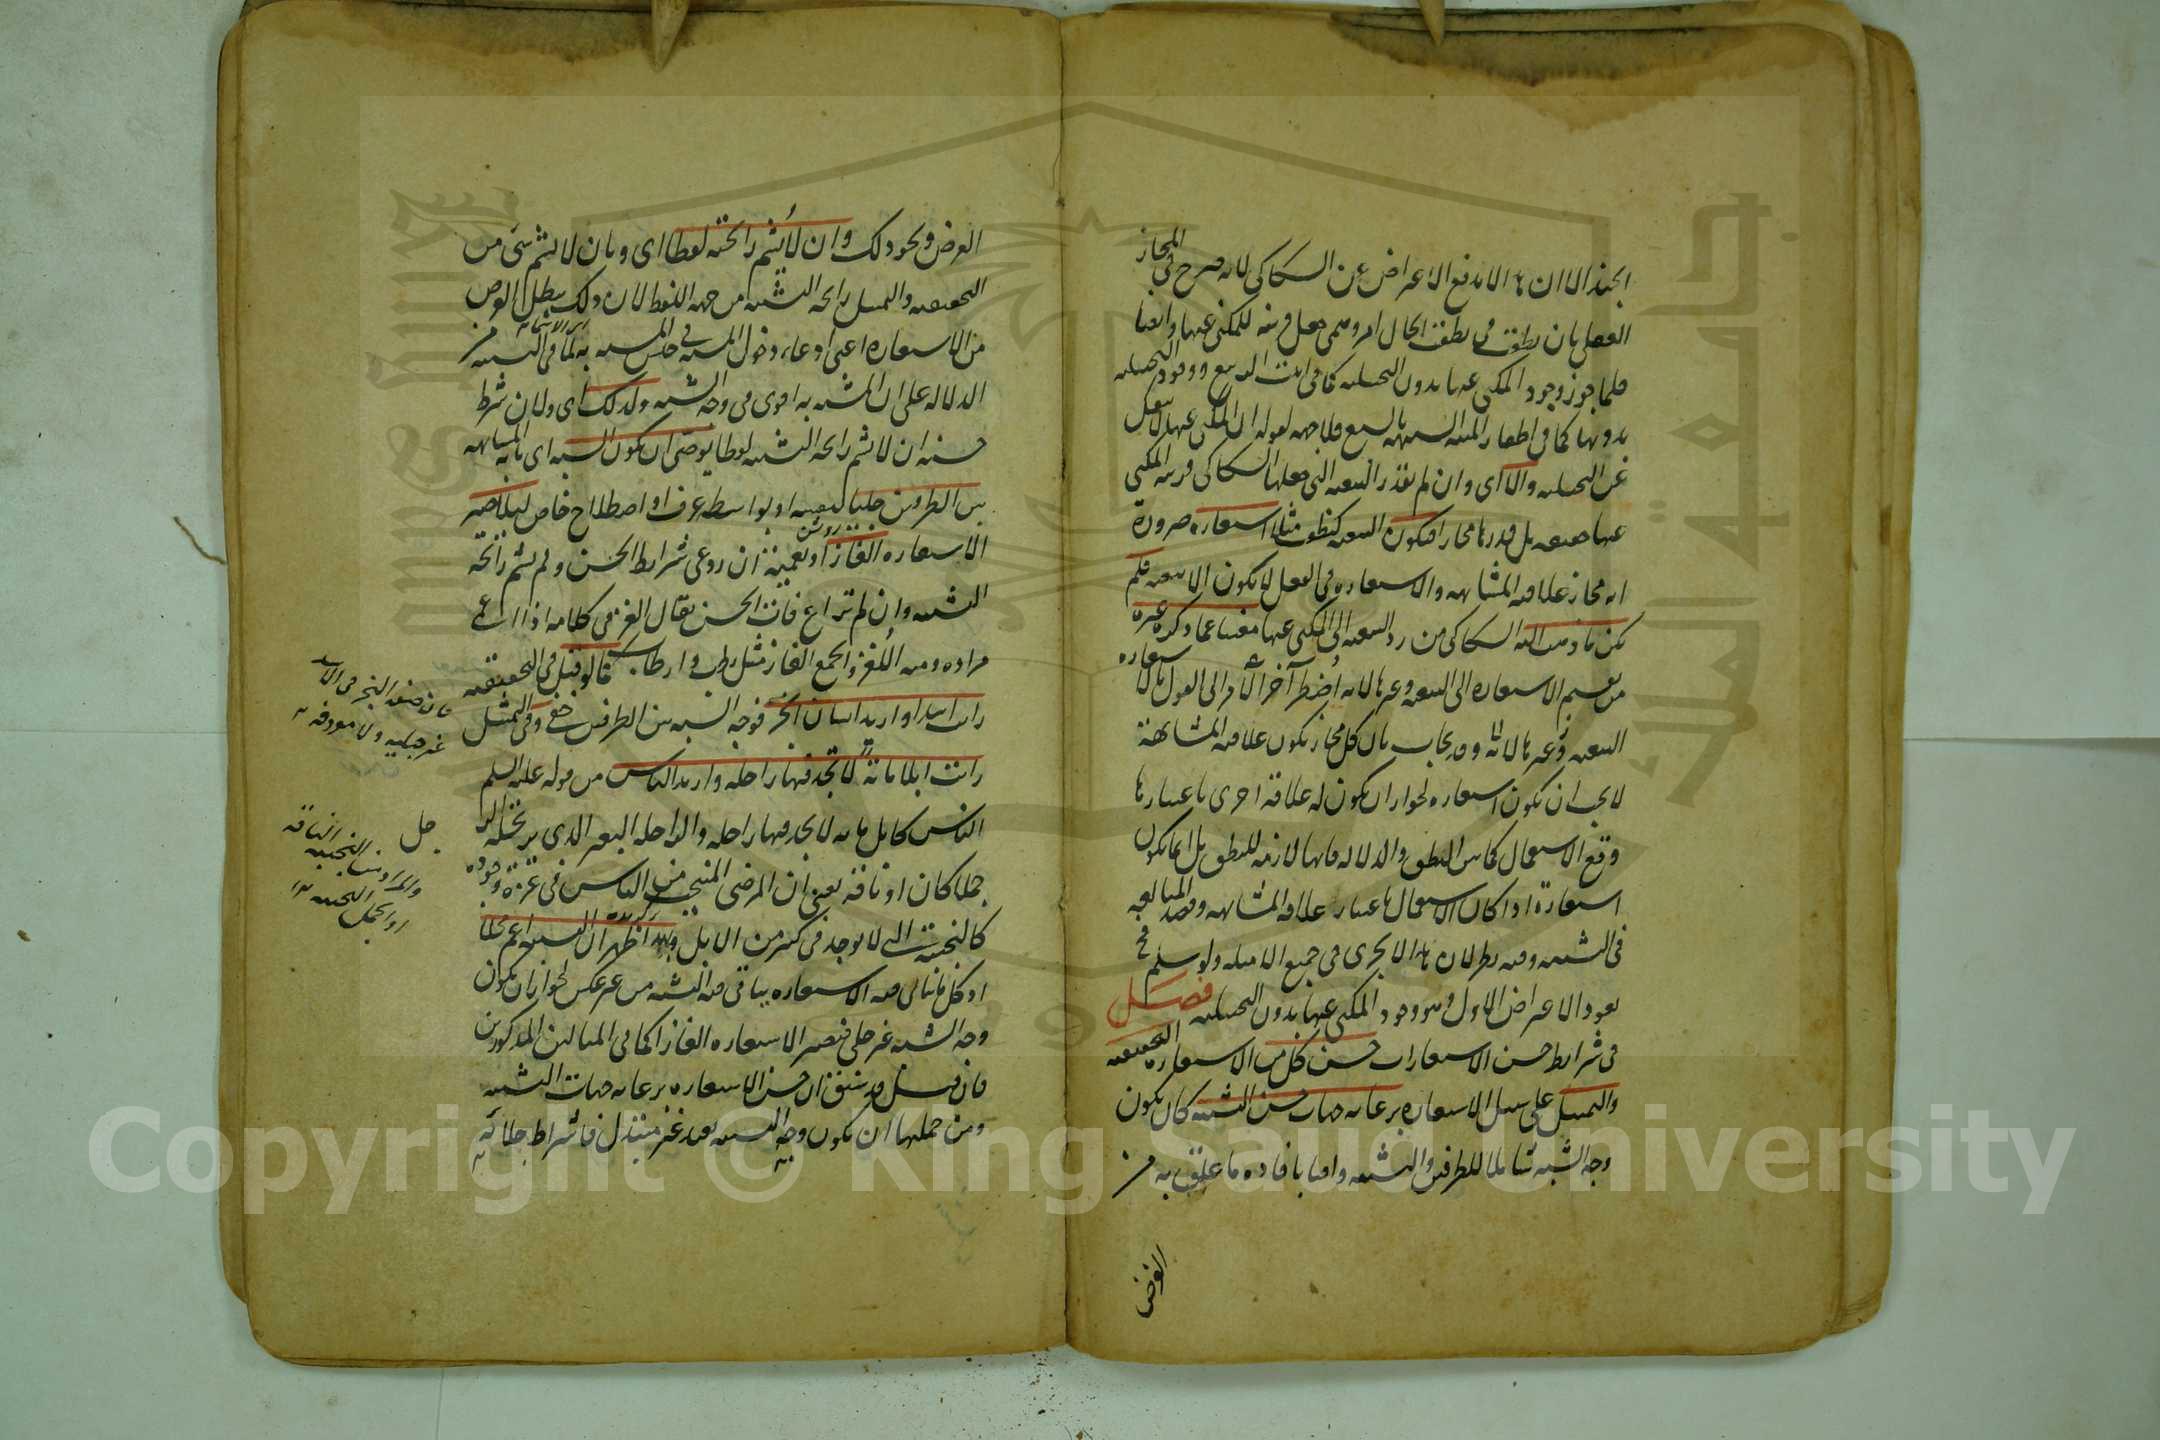 الجند الا ان هذا لا يدفع الاعتراض عن السكاكي لانه صرح في المجاز
العقلي بان نطقت في نطقت الحال امر وهمي جعل قرينة للمكنى عنها وايضا
فلما جوز وجود المكنى عنها بدون التخييلية كما في انبت الربيع ووجود التخييلية
بدونها كما في اظفار المنية الشبيهة بالسبع فلا جهة لقوله ان المكنى عنها لا تنفك
عن التخييلية والا اى وان لم يقدر التبعية التي جعلها السكاكي قرينة المكنى
عنها حقيقة بل قدرها مجازا فتكون التبعية كنطقت مثلا استعارة ضرورة
انه مجاز علاقته المشابهة والاستعارة في الفعل لا يكون الا تبعية فلم
يكن ما ذهب اليه السكاكي من رد التبعية الى المكنى عنها مغنيا عما ذكره غيره
من تقسيم الاستعارة الى التبعية وغيرها لانه اضطر آخر الامر الى القول بالاستعارة
التبعية وغيرها لانه وقد يجاب بان كل مجاز يكون علاقته المشابهة
لا يجب ان يكون استعارة لجواز ان يكون له علاقة اخرى باعتبارها
وقع الاستعمال كما بين النطق والدلالة فانها لازمة للنطق بل انما يكون
استعارة اذا كان الاستعمال باعتبار علاقة المشابهة وقصد المبالغة
في التشبيه وفيه نظر لان هذا لا يجرى في جميع الامثلة ولو سلم فح
يعود الاعتراض الاول وهو وجود المكنى عنها بدون التخييلية فصل
في شرايط حسن الاستعارات حسن كل من الاستعارة التحقيقية
والتمثيل على سبيل الاستعارة برعاية جهات حسن التشبيه كان يكون
وجه الشبه شاملا للطرفين والتشبيه وافيا بافادة ما علق به من
الغرض
الغرض ونحو ذلك وان لا يشم رائحته لفظا اى وبان لا يشم شى من
التحقيقية والتمثيل رائحة التشبيه من جهة اللفظ لان ذلك يبطل الغرض
من الاستعارة اعنى ادعاء دخول المشبه في جنس المشبه به لما في التشبيه من
الدلالة على ان المشبه به اقوى في وجه الشبه ولذلك اى ولان شرط
حسنه ان لا يشم رائحة التشبيه لفظا يوصى ان يكون الشبه اى ما به المشابهة
بين الطرفين جليا بنفسه او بواسطة عرف او اصطلاح خاص لئلا تصير
الاستعارة الغازا وتعمية ان روعى شرايط الحسن ولم يشم رائحة
التشبيه وان لم تراع فات الحسن يقال الغز في كلامه اذا اعمى
مراده ومنه اللغز والجمع الغاز مثل رطب وارطاب كما لو قيل في التحقيقية
رايت اسدا واريد انسان ابخر فوجه الشبه بين الطرفين خفى وفي التمثيل
رايت ابلا مائة لا تجد فيها راحلة واريد الناس من قوله عليه السلم
الناس كابل مائة لا تجد فيها راحلة والراحلة البعير الذى يرتحله الرجل
جملا كان او ناقة يعنى ان المرضى المنتجب من الناس في عزة وجوده
كالنجيبة التى لا توجد في كثير من الابل وبهذا ظهر ان التشبيه اعم محلا
اذ كل ما يتاتى فيه الاستعارة يتاتى فيه التشبيه من غير عكس لجواز ان يكون
وجه الشبه غير جلى فتصير الاستعارة الغازا كما في المثالين المذكورين
فان قيل قد سبق ان حسن الاستعارة برعاية جهات التشبيه
ومن جملتها ان يكون وجه التشبيه بعيدا غير مبتذل فاشتراط جلائه
فان صفة البخر في الاسد
غير جلية ولا معروفة
Copyright © King Saud University